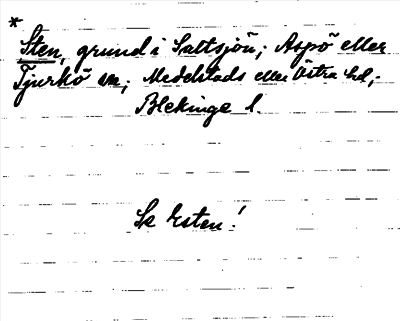 *
Sten, grund i Saltsjön; Aspö eller
Tjurkö sn; Medelstads eller Östra hd,;
Blekinge l.
Se Esten!